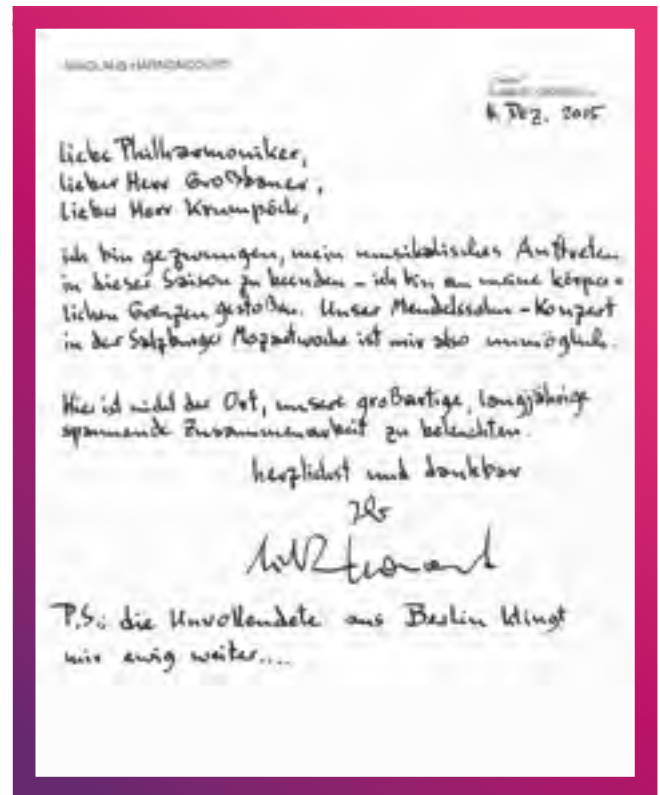 NIKOLAUS HARNONCOURT
Dez. 2015
liebe Philharmoniker,
lieber Herr Großbauer,
lieber Herr Krumpöck,
ich bin gezwungen, mein musikalisches Auftreten
in dieser Saison zu beenden – ich bin an meine körper-
lichen Grenzen gestoßen. Unser Mendelssohn-Konzert
in der Salzburger Mozartwoche ist mir also unmöglich.
Hier ist nicht der Ort, unsere großartige, langjährige
spannende Zusammenarbeit zu beleuchten.
herzlichst und dankbar
Ihr
P.S.: die Unvollendete aus Berlin klingt
mir ewig weiter....